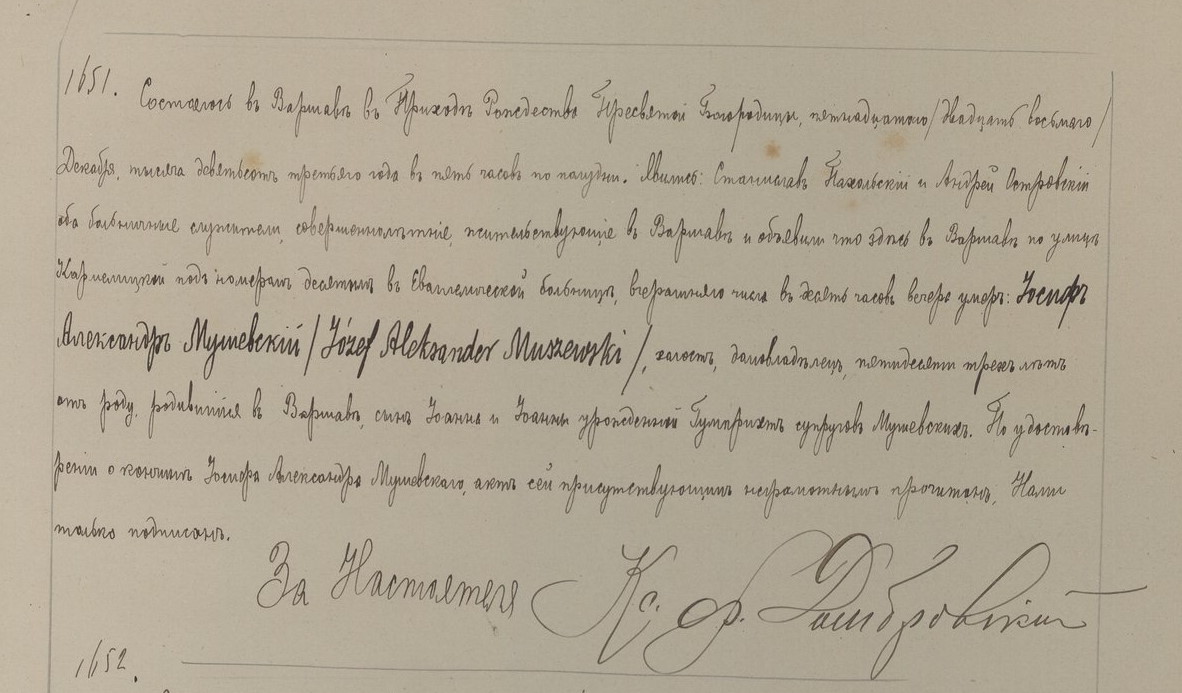 1651. Состоялось въ Варшавѣ въ Приходѣ Рождества Пресвятой Богородицы, пятнадцатого /двадцать восьмаго/
Декабря, тысяча девятьсотъ третьяго года въ пять часовъ по полудни. Явились: Станиславъ Пахольскій и Андрей Островскій
оба больничные служители, совершеннолѣтніе, жительствующіе въ Варшавѣ и объявили что здѣсь въ Варшавѣ по улицѣ
Кармелицкой подъ номеромъ десятымъ въ Евангелической больницѣ, вчерашняго числа въ десять часовъ вечера умеръ: Іосифъ
Александръ Мушевскій /Józef Aleksander Muszewski/, холостъ, домовладѣлецъ, пятидесяти трехъ лѣтъ
отъ роду, родившійся въ Варшавѣ, сынъ Іоанна и Іоанны урожденной Гумприхтъ супруговъ Мушевскихъ. По удостовѣ-
реніи о кончинѣ Іосифа Александра Мушевскаго, актъ сей присутствующимъ неграмотнымъ прочитанъ, Нами
только подписанъ.
За Настоятеля Кс. Ф. Домбровскій
1652.